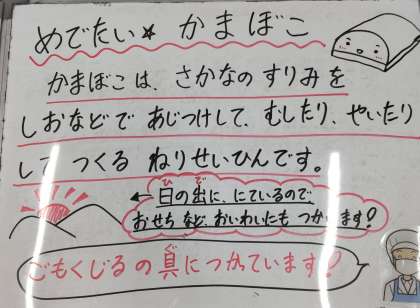 めでたい★ かまぼこ
かまぼこは、さかなのすりみを
しおなどで あじつけして、むしたり、やいたり
して つくる ねりせいひんです。
日の出に、にているので
おせちなど、おいわいにも つかいます!
ごもくじるの具につかっています!